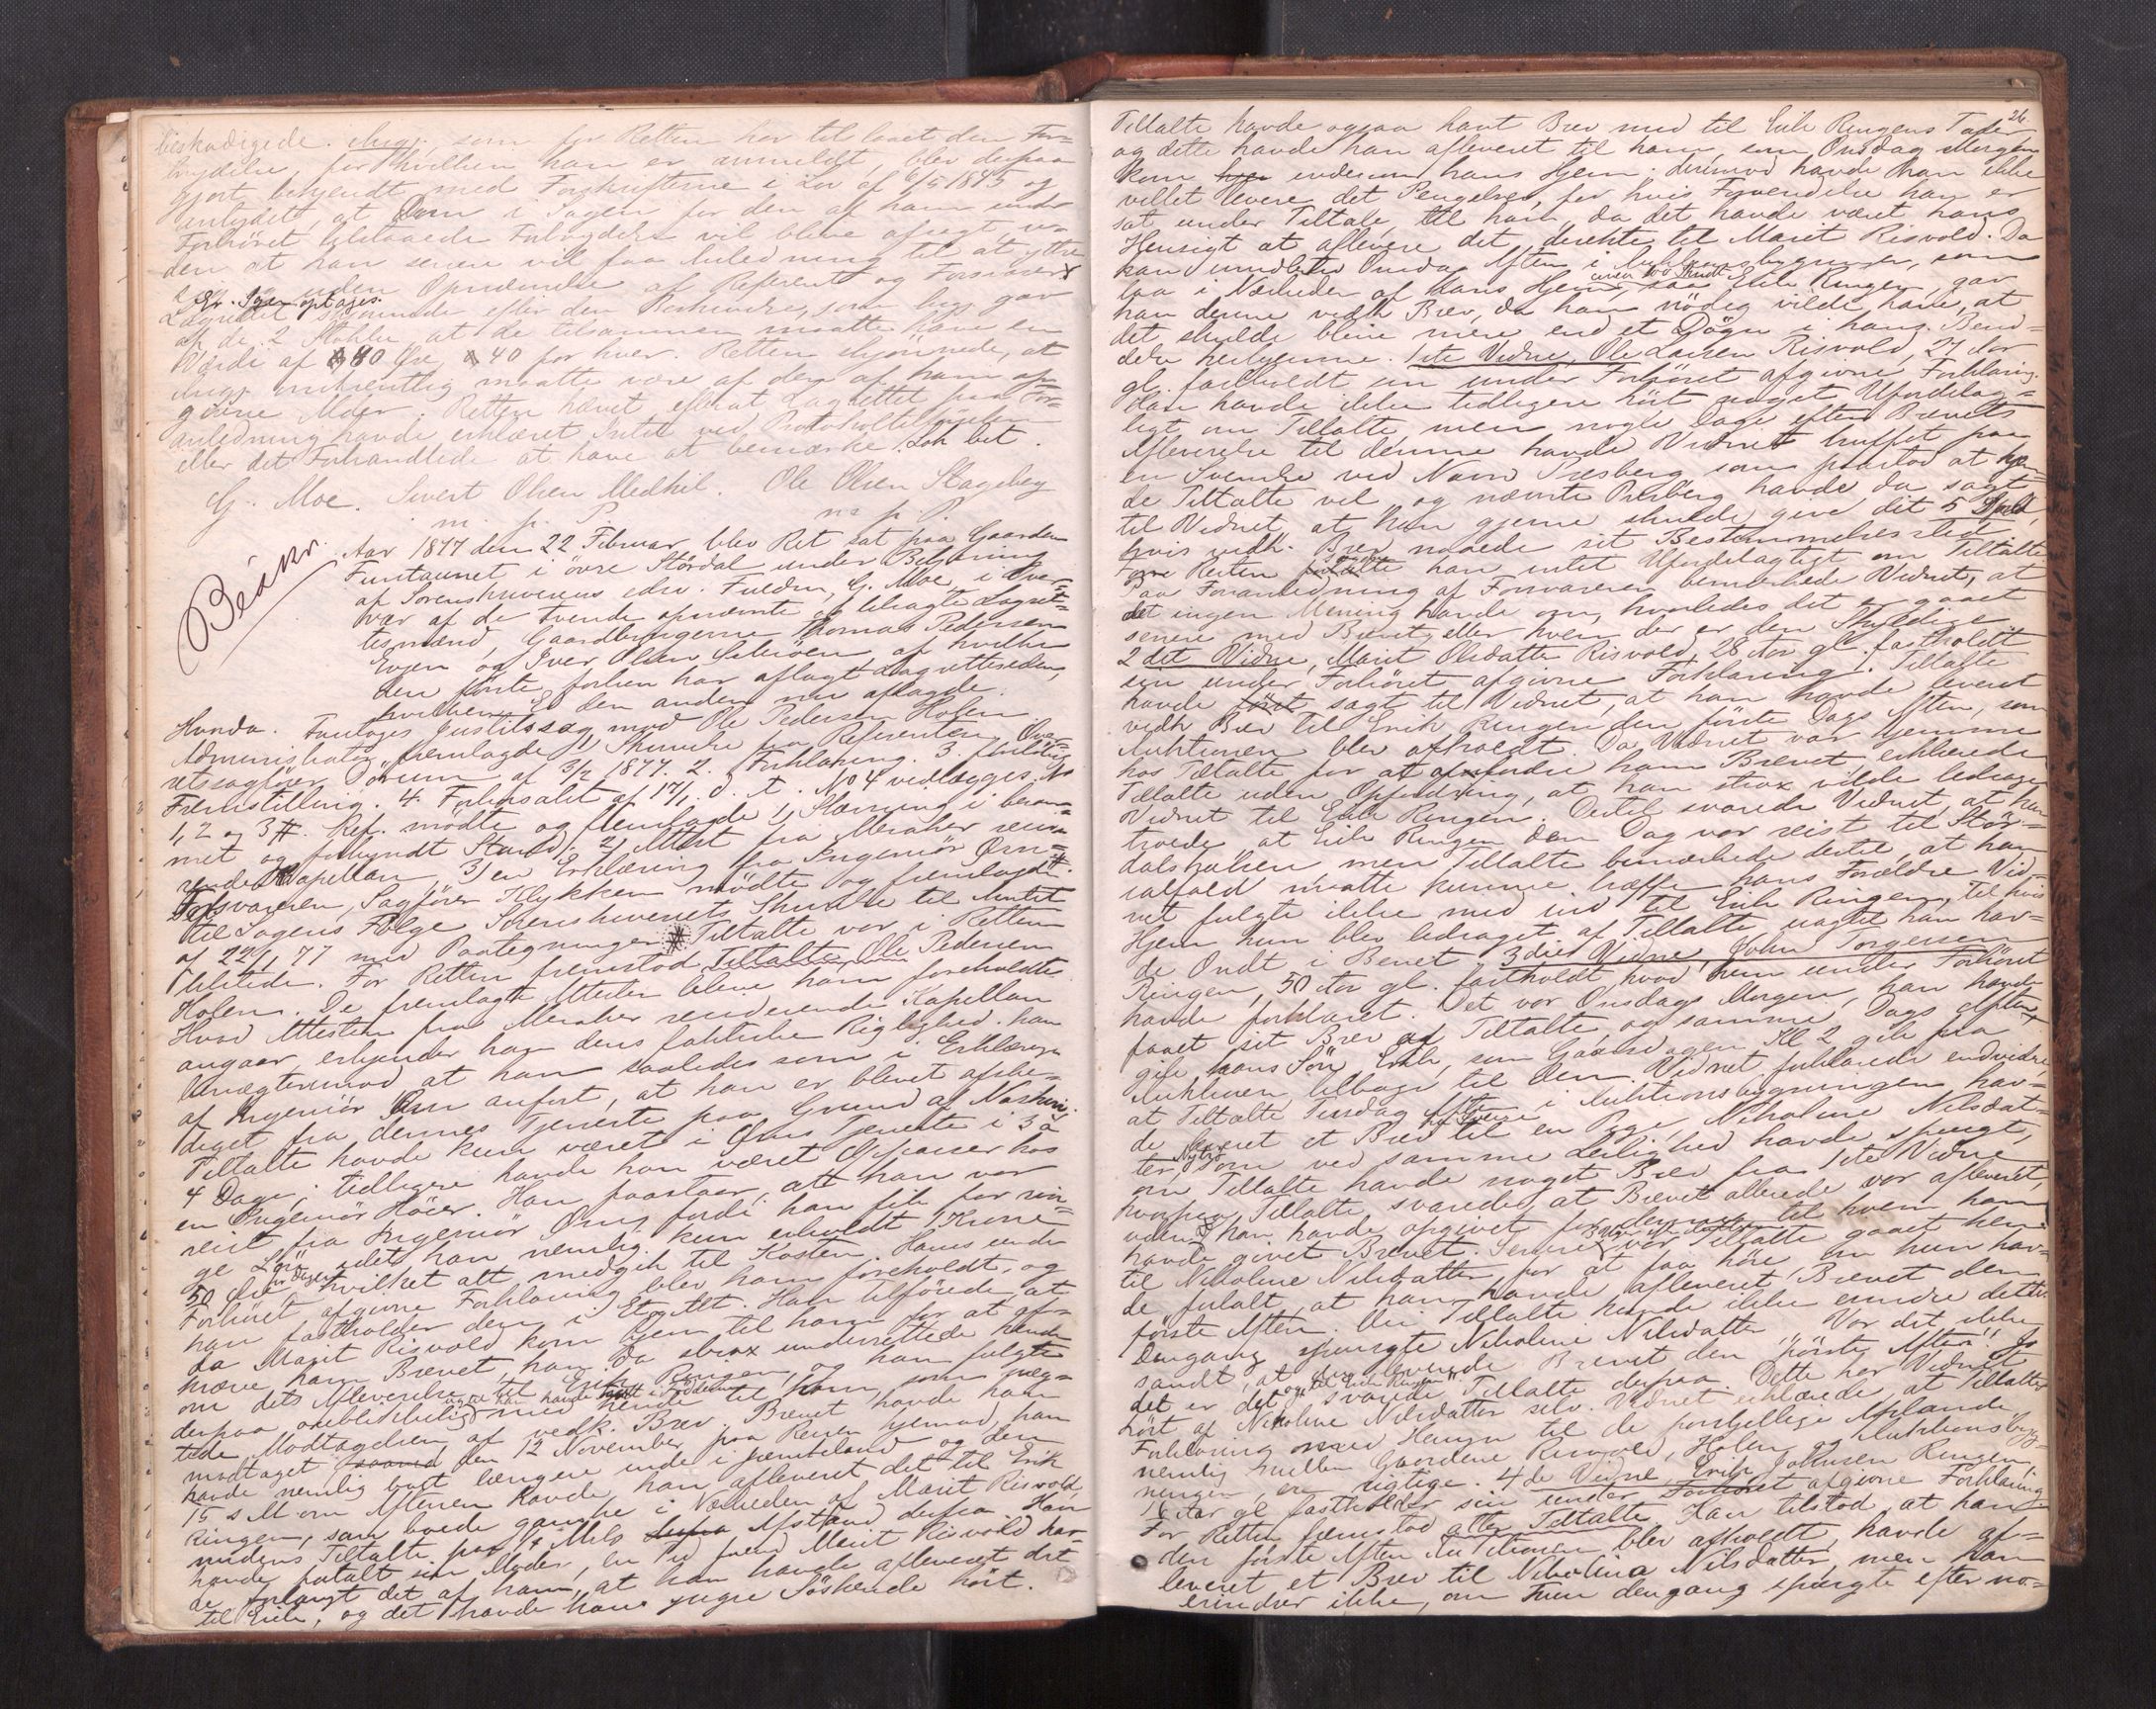 beskadigede. Ang. som for Retten har tilstaaet den For-
brydelse, for hvilken han er anmeldt, blev derpaa
gjort bekjendt med Forskrifterne i Lov af 6/5 1845 og
antydet, at Dom i Sagen for den af ham under
Forhøret tilstaaede vil blive afsagt, u-
den at han senere vil faa Anledning til at yttre
sig uden Opnævnelse af Referent og Forsvarer
Er. Igen optages.
Lagrettet skjønnede efter den Beskrivelse, som Ang. gav
af de 2 Stokke at de tilsammen maatte have en
Værdi af 80 Øre, 40 for hver. Retten skjønnede, at
Ang. omtrentlig maatte være af den af ham op-
givne Alder. Retten hævet, efterat Lagrettet paa For-
anledning havde erklæret Intet ved Protokoltilførselen
eller det Forhandlede at have at bemærke. Lok bet.
G. Moe. Sivert Olsen Medhil. Ole Olsen Skageberg
m. p. P. m. p. P.
Beskr.
Aar 1877 den 22 Februar blev Ret sat paa Gaarden
Funtaunet i øvre Stördal under Betjening
af Sorenskriverens edsv. Fuldm, G. Moe, i Over-
vær af de tvende opnævnte og tilsagte Lagret-
tesmænd, Gaardbrugerne Thomas Pedersen
Evjen og Iver Olsen af hvilke
den første forhen har aflagt Lagretteseden,
hvilken Ed den anden nu aflagde.
Hvorda. Foretoges Justitssag mod Ole Pedersen Holen
Administrator fremlagde 1, Skrivelse fra Referenten, Over-
retssagfører af 3/2 1877. 2. Forklaring. 3. forløbig
Fremstilling. 4. Forhørsakt af 17/1 d. A. No 4 vedlægges. No
1, 2 og 3 #. Ref. mødte og fremlagde 1, Stævning i beram-
met og forkyndt Stand, 2, Attest fra Meraker resi-
derende Kapellan, 3, en Erklæring fra Ingeniør Orn #.
Forsvareren, Sagfører Klykken mødte og fremlagde
til Sagens Følge Sorenskriveriets Skrivelse til Amtet
af 22/1 77 med Paategninger #. Tiltalte var i Retten
tilstede. For Retten fremstod Tiltalte, Ole Pedersen
Holen. De fremlagte Attester bleve ham foreholdte.
Hvad Attesten fra Meraker residerende Kapellan
angaar, erkjender han dens faktiske Rigtighed. han
benægter mod at han saaledes som i Erklæringen
af Ingeniør Orn anført, at han er blevet afske-
diget fra dennes Tjeneste paa Grund af Naskeri.
Tiltalte havde kun været i Orns Tjeneste i 3 a
4 Dage; tidligere havde han været Opasser hos
en Ingeniør Höier. Han paastaar, at han var
reist fra Ingeniør Orn, fordi han fik for rin-
ge Løn, idet han nemlig kun erholdt 1 Krone
50 Øre pr Dagen hvilket alt medgik til Kosten. Hans under
Forhøret afgivne Forklaring blev ham foreholdt, og
han fastholder den i Et og Alt. Han tilføiede, at
da Marit Risvold kom hjem til ham for at af-
kræve ham Brevet, han da strax underrettede hende
om dets Afleverelse til Erik Ringen, og han fulgte
derpaa øieblikkelig med hende til ham, som næg-
tede Modtagelsen af vedk. Brev. Brevet havde han
modtaget den 12 November paa Reisen hjemad, han
havde nemlig levet længere inde i Jæmteland og den
15 s M om Aftenen havde han afleveret det til Erik
Ringen, som boede ganske i Nærheden af Marit Risvold
medens Tiltalte paa 1/4 Mils Afstand derfra. Han
havde fortalt sin Moder, en Tid forend Marit Risvold hav-
de forlangt det af ham, at han havde afleveret det
til Erik, og det havde hans yngre Söskende hört.
26
Tiltalte havde ogsaa havt Brev med til Erik Ringens Fader,
og dette havde han afleveret til ham, som Onsdag Morgen
kom indesom hans Hjem; derimod havde han ikke
villet levere det Pengebrev, for hvis Forvendelse han er
sat under Tiltale, til ham, da det havde været hans
Hensigt at aflevere det direkte til Marit Risvold. Da
han imidlertid Onsdag Aften i Auktionsbygningen, som
laa i Nærheden af hans Hjem, circa 100 Skridt, saa Erik Ringen, gav
han denne vedk Brev, da han nödig vilde have, at
det skulde blive mere end et Dögn i hans Besid-
delse herhjemme. 1ste Vidne, Ole Larsen Risvold, 27 Aar
gl. fastholdt sin under Forhöret afgivne Forklaring.
Han havde ikke tidligere hört noget Ufordelag-
ligt om Tiltalte men nogle Dage efter Brevets
Afleverelse til denne havde Vidnet truffet paa
en Svenske ved Navn Presberg, som paastod at kjen-
de Tiltalte vel, og nævnte Presberg havde da sagt
til Vidnet, at han gjerne skulde give det 5 Spd,
hvis vedk. Brev naaede sit Bestemmelsessted.
For Resten fortalte han intet Ufordelagtigt om Tiltalte
Paa Foranledning af Forsvareren bemærkede Vidnet, at
det ingen Mening havde om, hvorledes det er gaaet
senere med Brevet, eller hvem der er den Skyldige
2det Vidne, Marit Olsdatter Risvold, 28 Aar gl. fastholdt
sin under Forhöret afgivne Forklaring. Tiltalte
havde först sagt til Vidnet, at han havde leveret
vedk Brev til Erik Ringen den förste Dags Aften, som
Auktionen blev afholdt. Da Vidnet var hjemme
hos Tiltalte for at affordre ham Brevet, erklærede
Tiltalte uden Opfordring, at han strax vilde ledsage
Vidnet til Erik Ringen. Dertil svarede Vidnet, at han
troede, at Erik Ringen den Dag var reist til Stör-
dalshalsen men Tiltalte bemærkede dertil, at han
ialfald maatte kunne træffe hans Forældre. Vid-
net fulgte ikke med ind til Erik Ringen, til hvis
Hjem hun blev ledsaget af Tiltalte uagtet han hav-
de Ondt i Benet. 3die Vidne, John Torgersen
Ringen, 50 Aar gl. fastholdt hvad han under Forhöret
havde forklaret. Det var Onsdags Morgen, han havde
faaet sit Brev af Tiltalte, og samme Dags Aften
gik hans Sön Erik, som Kl 2 gik fra
Auktionen tilbage til den. Vidnet forklarede endvidere,
at Tiltalte Tirsdag Aften i Auktionsbygningen hav-
de leveret et Brev til en Pige, Nikoline Nilsdat-
ter, som ved samme Leilighed havde spurgt,
om Tiltalte havde noget Brev fra 1ste Vidne
hvorpaa Tiltalte svarede, at Brevet allerede var afleveret,
uden at han havde opgivet for hende til hvem han
havde givet Brevet. Senere var Tiltalte gaaet hen
til Nikoline Nilsdatter for at faa höre, om hun hav-
de fortalt, at han havde afleveret Brevet den
förste Aften. Tiltalte kunde ikke erindre dette.
Dengang spurgte Nikoline Nilsdatter "Var det ikke
sandt, at du leverede Brevet den förste Aften". Jo
det er det svarede Tiltalte derpaa. Dette har Vidnet
hört af Nikoline Nilsdatter selv. Vidnet erklærede, at Tiltaltes
Forklaring med Hensyn til de forskjellige Afstande
nemlig mellem Gaardene Risvold, Holen og Auktionsbyg-
ningen, er rigtige. 4de Vidne, Erik Johnsen Ringen,
16 Aar gl. fastholder sin under Forhöret afgivne Forklaring
For Retten fremstod atter Tiltalte. Han tilstod, at han
den förste Aften Auktionen blev afholdt, havde af-
leveret et Brev til Nikolina Nilsdatter, men han
erindrer ikke, om hun dengang spurgte efter no-